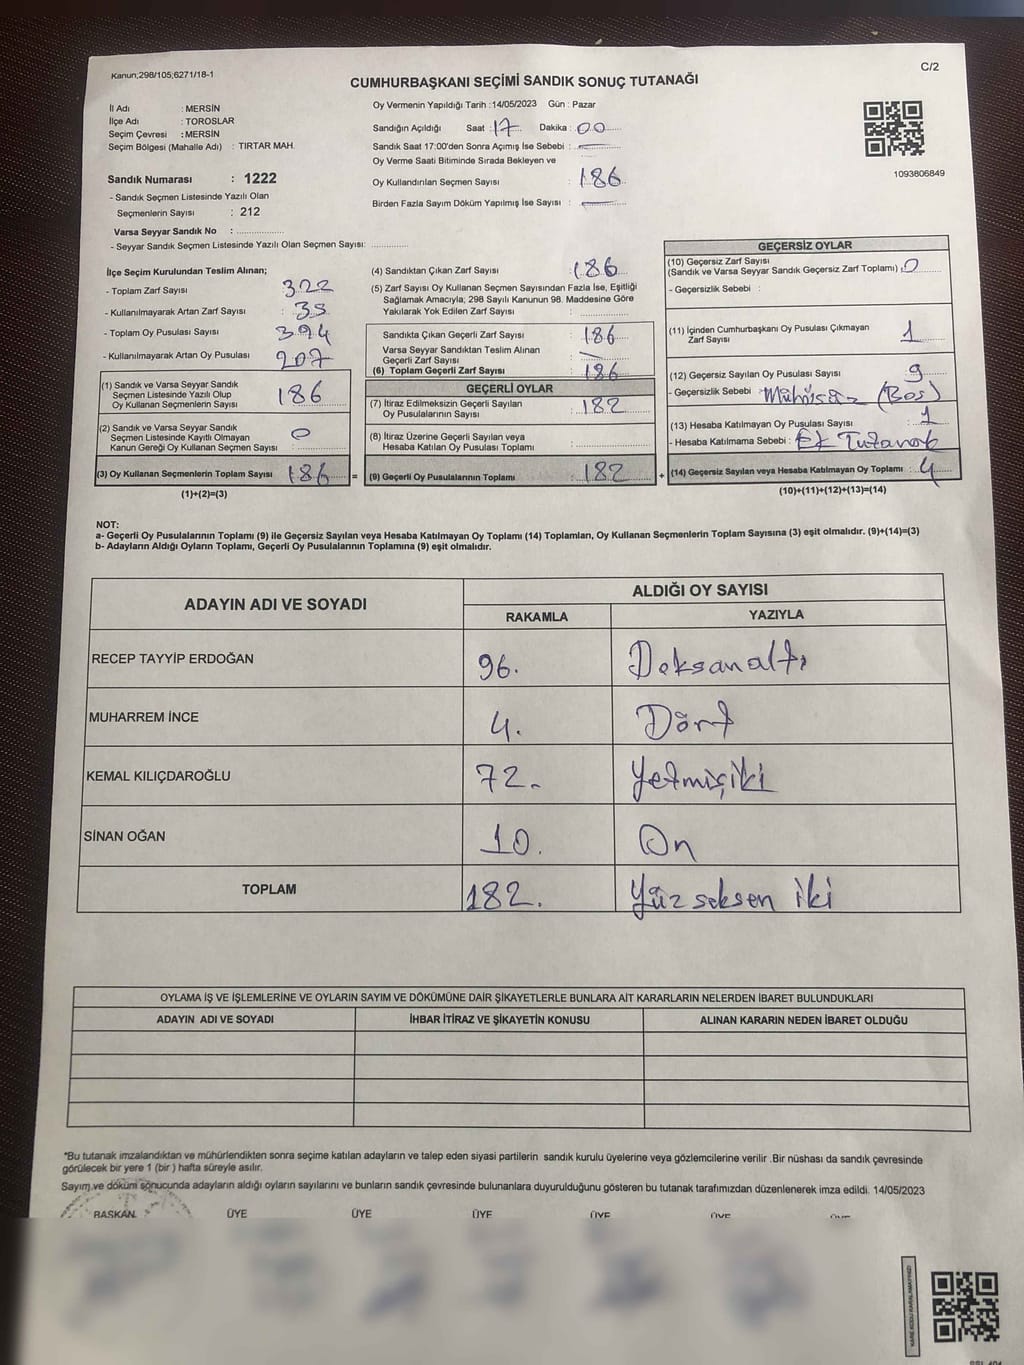 Kanun;298/105;6271/18-1
C/2
CUMHURBAŞKANI SEÇİMİ SANDIK SONUÇ TUTANAĞI
İl Adı : MERSİN
İlçe Adı : TOROSLAR
Seçim Çevresi : MERSİN
Seçim Bölgesi (Mahalle Adı) : TIRTAR MAH.
Sandık Numarası : 1222
- Sandık Seçmen Listesinde Yazılı Olan
Seçmenlerin Sayısı : 212
Varsa Seyyar Sandık No :
- Seyyar Sandık Seçmen Listesinde Yazılı Olan Seçmen Sayısı:
Oy Vermenin Yapıldığı Tarih :14/05/2023 Gün : Pazar
Sandığın Açıldığı Saat : 17 Dakika : 00
Sandık Saat 17:00'den Sonra Açımış İse Sebebi :
Oy Verme Saati Bitiminde Sırada Bekleyen ve
Oy Kullandırılan Seçmen Sayısı : 186
Birden Fazla Sayım Döküm Yapılmış İse Sayısı :
1093806849
İlçe Seçim Kurulundan Teslim Alınan;
- Toplam Zarf Sayısı : 322
- Kullanılmayarak Artan Zarf Sayısı :
- Toplam Oy Pusulası Sayısı : 394
- Kullanılmayarak Artan Oy Pusulası : 207
(1) Sandık ve Varsa Seyyar Sandık
Seçmen Listesinde Yazılı Olup
Oy Kullanan Seçmenlerin Sayısı : 186
(2) Sandık ve Varsa Seyyar Sandık
Seçmen Listesinde Kayıtlı Olmayan
Kanun Gereği Oy Kullanan Seçmen Sayısı : 0
(3) Oy Kullanan Seçmenlerin Toplam Sayısı : 186 =
(1)+(2)=(3)
(4) Sandıktan Çıkan Zarf Sayısı : 186
(5) Zarf Sayısı Oy Kullanan Seçmen Sayısından Fazla İse, Eşitliği
Sağlamak Amacıyla; 298 Sayılı Kanunun 98. Maddesine Göre
Yakılarak Yok Edilen Zarf Sayısı :
Sandıkta Çıkan Geçerli Zarf Sayısı : 186
Varsa Seyyar Sandıktan Teslim Alınan
Geçerli Zarf Sayısı :
(6) Toplam Geçerli Zarf Sayısı : 186
GEÇERLİ OYLAR
(7) İtiraz Edilmeksizin Geçerli Sayılan
Oy Pusulalarının Sayısı : 182
(8) İtiraz Üzerine Geçerli Sayılan veya
Hesaba Katılan Oy Pusulası Toplamı :
(9) Geçerli Oy Pusulalarının Toplamı : 182 +
GEÇERSİZ OYLAR
(10) Geçersiz Zarf Sayısı
(Sandık ve Varsa Seyyar Sandık Geçersiz Zarf Toplamı) : 0
- Geçersizlik Sebebi :
(11) İçinden Cumhurbaşkanı Oy Pusulası Çıkmayan
Zarf Sayısı : 1
(12) Geçersiz Sayılan Oy Pusulası Sayısı :
- Geçersizlik Sebebi : Mühürsüz (Boş)
(13) Hesaba Katılmayan Oy Pusulası Sayısı : 1
- Hesaba Katılmama Sebebi : Ek Tutanak
(14) Geçersiz Sayılan veya Hesaba Katılmayan Oy Toplamı : 4
(10)+(11)+(12)+(13)=(14)
NOT:
a- Geçerli Oy Pusulalarının Toplamı (9) ile Geçersiz Sayılan veya Hesaba Katılmayan Oy Toplamı (14) Toplamları, Oy Kullanan Seçmenlerin Toplam Sayısına (3) eşit olmalıdır. (9)+(14)=(3)
b- Adayların Aldığı Oyların Toplamı, Geçerli Oy Pusulalarının Toplamına (9) eşit olmalıdır.
ADAYIN ADI VE SOYADI ALDIĞI OY SAYISI
RAKAMLA YAZIYLA
RECEP TAYYİP ERDOĞAN 96. Doksanaltı
MUHARREM İNCE 4. Dört
KEMAL KILIÇDAROĞLU 72. Yetmişiki
SİNAN OĞAN 10. On
TOPLAM 182. Yüz seksen iki
OYLAMA İŞ VE İŞLEMLERİNE VE OYLARIN SAYIM VE DÖKÜMÜNE DAİR ŞİKAYETLERLE BUNLARA AİT KARARLARIN NELERDEN İBARET BULUNDUKLARI
ADAYIN ADI VE SOYADI İHBAR İTİRAZ VE ŞİKAYETİN KONUSU ALINAN KARARIN NEDEN İBARET OLDUĞU
*Bu tutanak imzalandıktan ve mühürlendikten sonra seçime katılan adayların ve talep eden siyasi partilerin sandık kurulu üyelerine veya gözlemcilerine verilir .Bir nüshası da sandık çevresinde
görülecek bir yere 1 (bir ) hafta süreyle asılır.
Sayım ve döküm sonucunda adayların aldığı oyların sayılarını ve bunların sandık çevresinde bulunanlara duyurulduğunu gösteren bu tutanak tarafımızdan düzenlenerek imza edildi. 14/05/2023
BAŞKAN ÜYE ÜYE ÜYE ÜYE ÜYE
KARE KODU KARALAMAYINIZ!